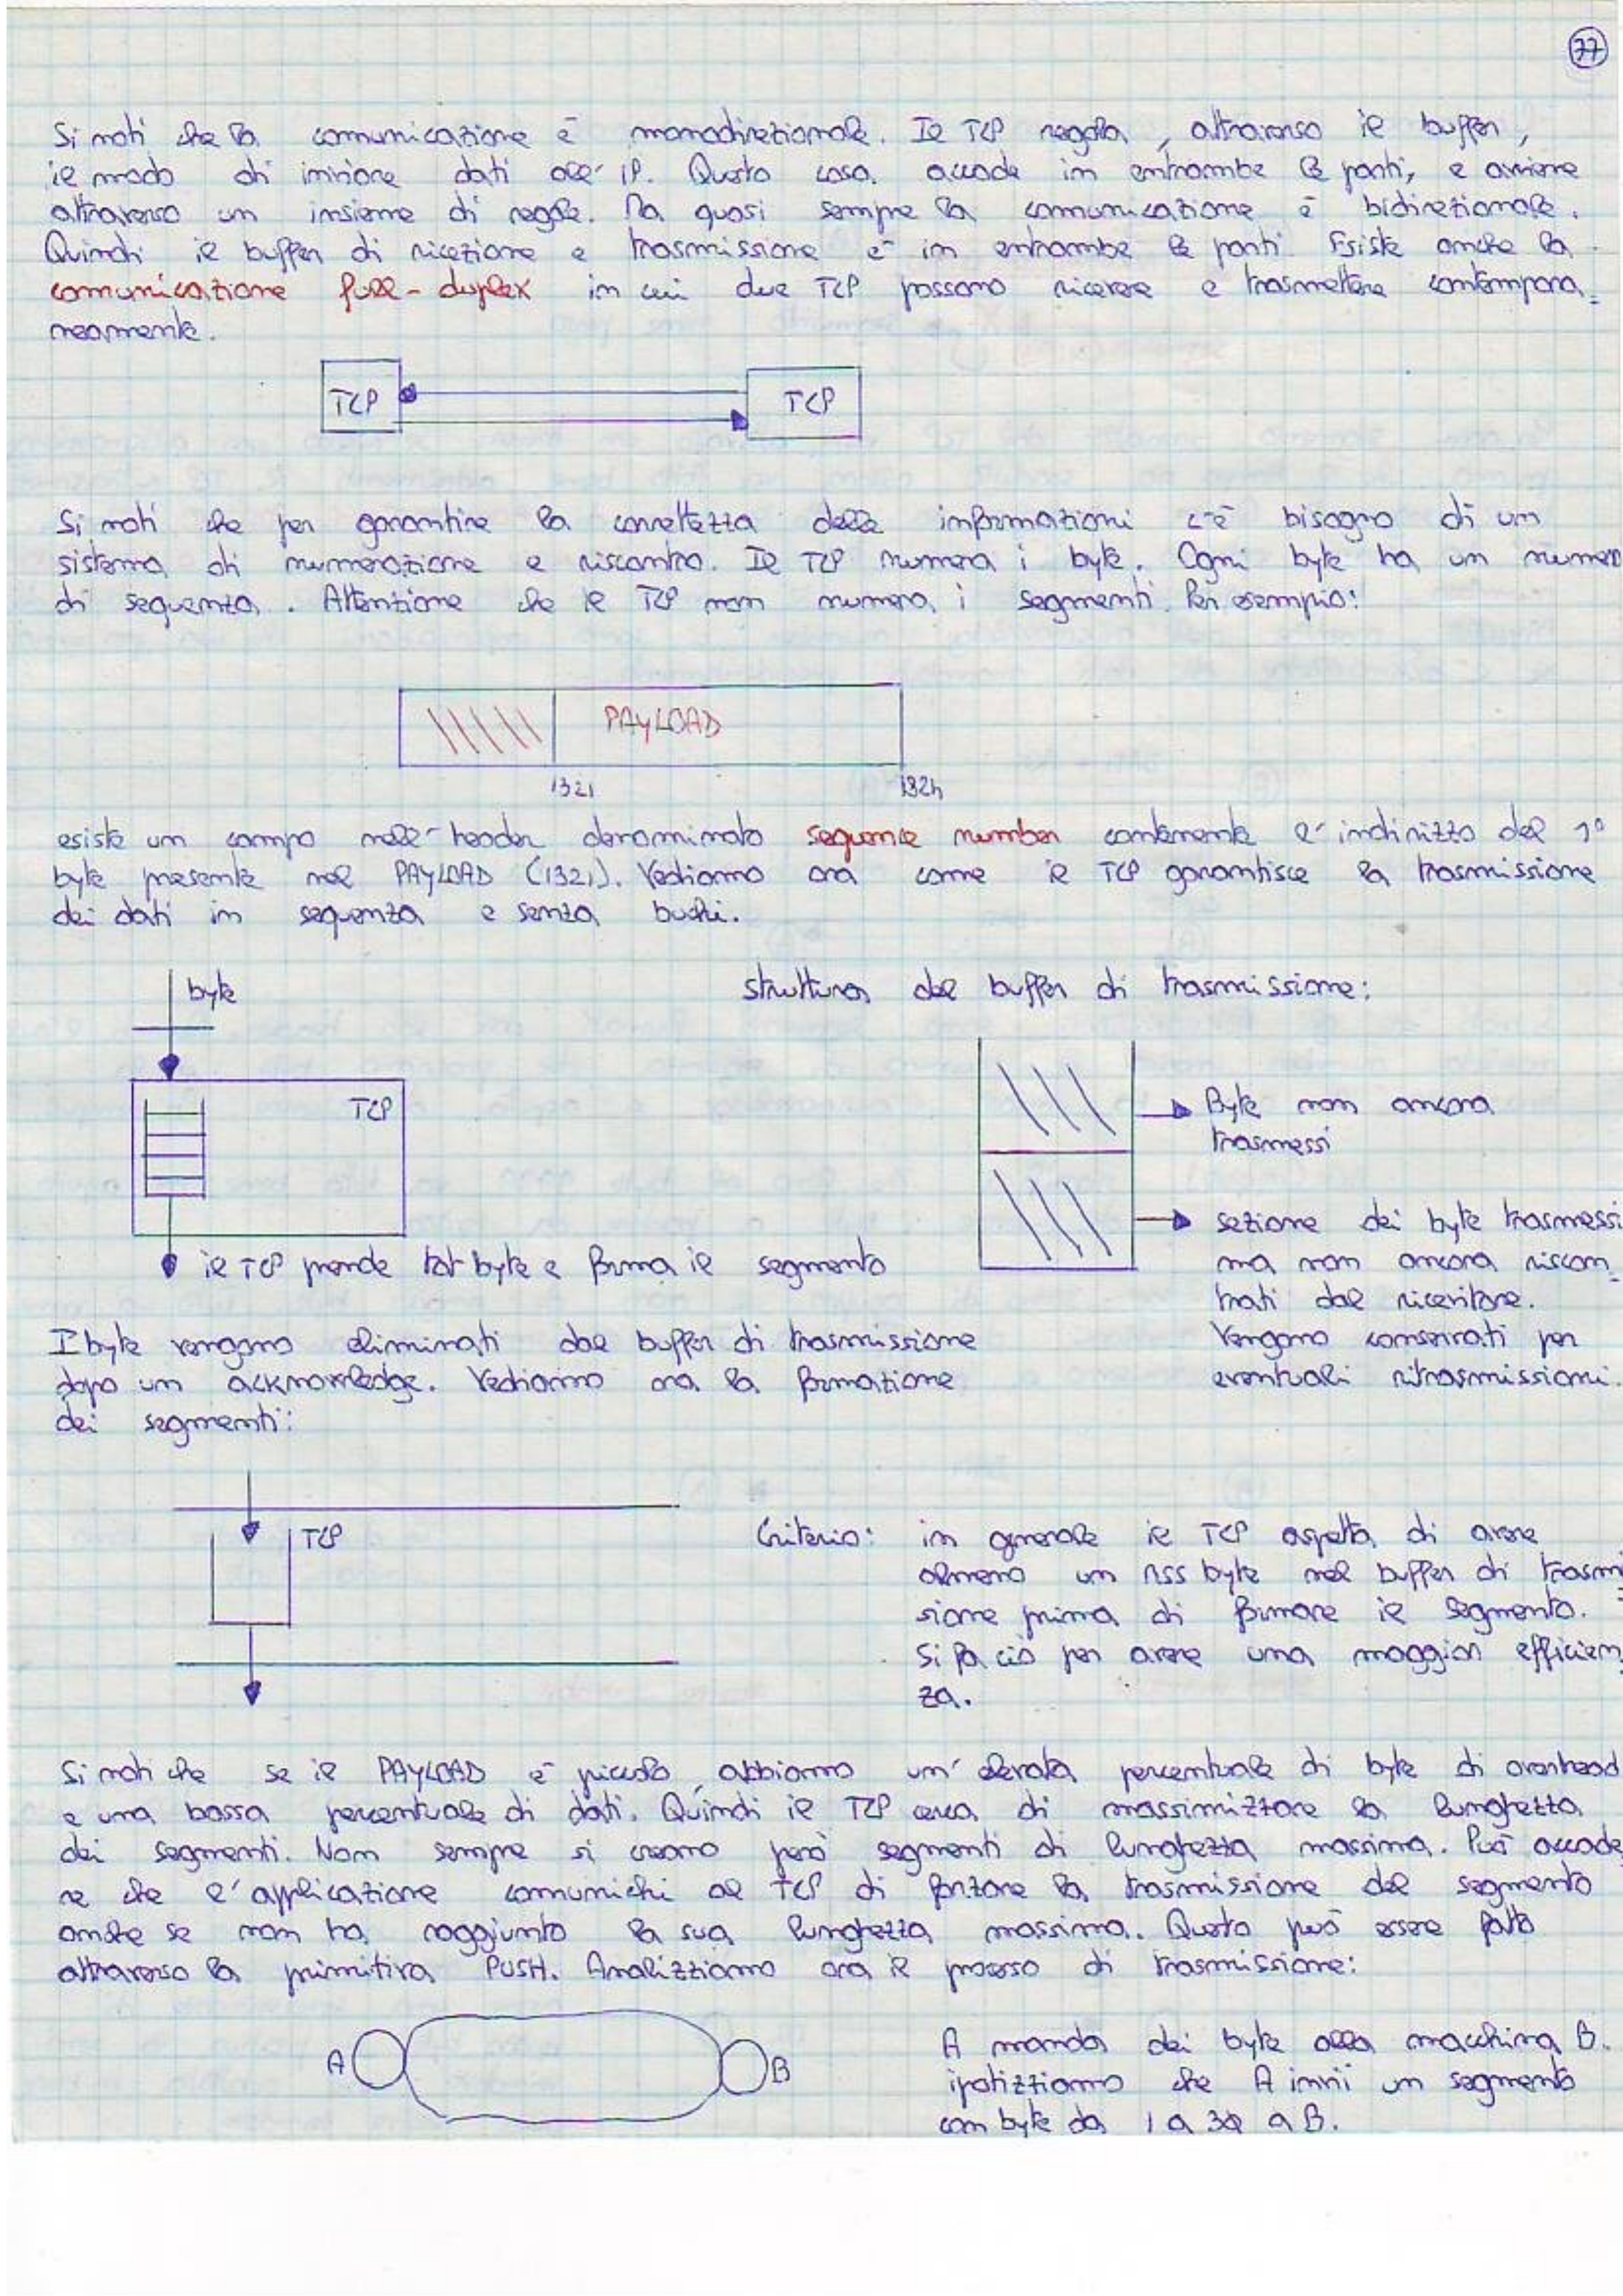 77
Si noti che la comunicazione è monodirezionale. Il TCP regola, attraverso il buffer,
il modo di inviare dati all'IP. Questa cosa accade in entrambe le parti, e avviene
attraverso un insieme di regole. Ma quasi sempre la comunicazione è bidirezionale.
Quindi il buffer di ricezione e trasmissione è in entrambe le parti. Esiste anche la
comunicazione full-duplex in cui due TCP possono ricevere e trasmettere contempora_
neamente.
TCP TCP
Si noti che per garantire la correttezza delle informazioni c'è bisogno di un
sistema di numerazione e riscontro. Il TCP numera i byte. Ogni byte ha un numero
di sequenza. Attenzione che il TCP non numera i segmenti. Per esempio:
PAYLOAD
1321
esiste un campo nell'header denominato sequence number contenente l'indirizzo del 1°
byte presente nel PAYLOAD (1321). Vediamo ora come il TCP garantisce la trasmissione
dei dati in sequenza e senza buchi.
byte
TCP
il TCP prende tot byte e forma il segmento
struttura del buffer di trasmissione:
Byte non ancora
trasmessi
sezione dei byte trasmessi
ma non ancora riscon_
trati dal ricevitore.
Vengono conservati per
eventuali ritrasmissioni.
I byte vengono eliminati dal buffer di trasmissione
dopo un acknowledge. Vediamo ora la formazione
dei segmenti:
TCP
Criterio: in generale il TCP aspetta di avere
almeno un MSS byte nel buffer di trasmi_
sione prima di formare il segmento.
Si fa ciò per avere una maggior efficien_
za.
Si noti che se il PAYLOAD è piccolo, abbiamo un'elevata percentuale di byte di overhead
e una bassa percentuale di dati. Quindi il TCP cerca di massimizzare la lunghezza
dei segmenti. Non sempre si creano però segmenti di lunghezza massima. Può accade_
re che l'applicazione comunichi al TCP di forzare la trasmissione del segmento
anche se non ha raggiunto la sua lunghezza massima. Questo può essere fatto
attraverso la primitiva PUSH. Analizziamo ora il processo di trasmissione:
A B
A manda dei byte alla macchina B.
ipotizziamo che A invii un segmento
con byte da 1 a 30 a B.